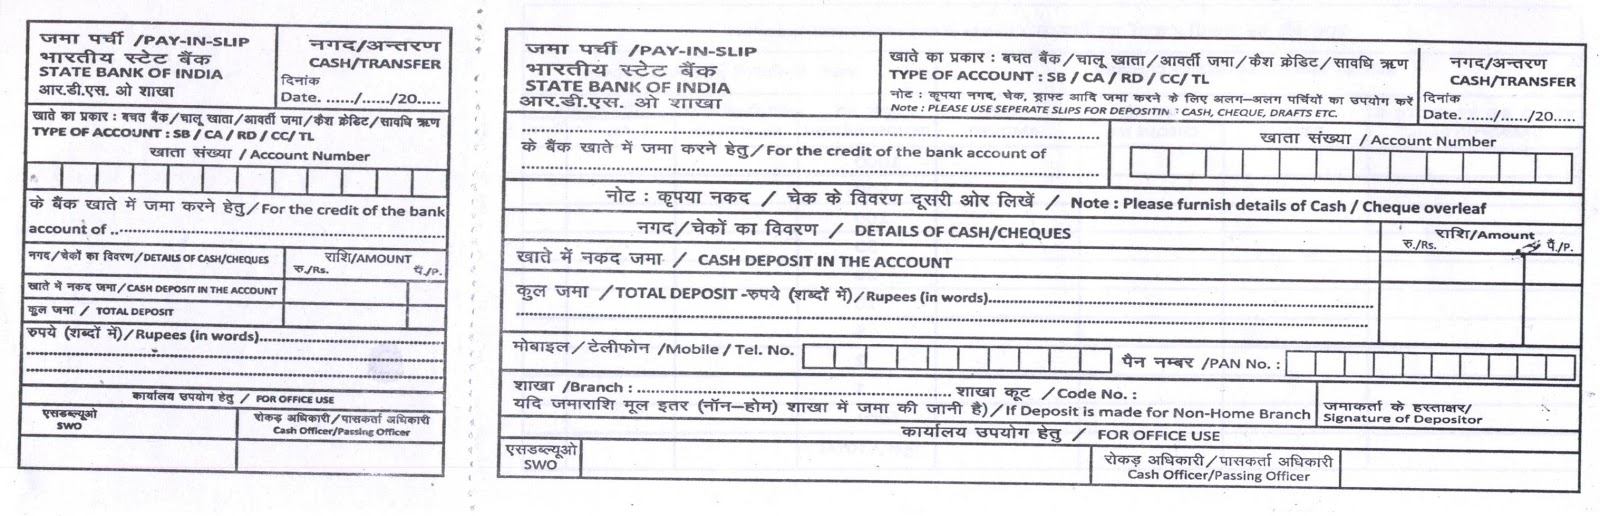 जमा पर्ची /PAY-IN-SLIP
भारतीय स्टेट बैंक
STATE BANK OF INDIA
आर.डी.एस. ओ शाखा
नगद/अन्तरण
CASH/TRANSFER
दिनांक
Date. ....../....../20.....
खाते का प्रकार : बचत बैंक/चालू खाता/आवर्ती जमा/कैश क्रेडिट/सावधि ऋण
TYPE OF ACCOUNT : SB / CA / RD / CC/ TL
खाता संख्या / Account Number
के बैंक खाते में जमा करने हेतु/For the credit of the bank
account of ..........................................................
नगद/चेकों का विवरण/DETAILS OF CASH/CHEQUES
राशि/AMOUNT
रु./Rs. पै./P.
खाते में नकद जमा/CASH DEPOSIT IN THE ACCOUNT
कुल जमा / TOTAL DEPOSIT
रुपये (शब्दों में)/Rupees (in words)................................
कार्यालय उपयोग हेतु / FOR OFFICE USE
एसडब्ल्यूओ
SWO
रोकड़ अधिकारी/पासकर्ता अधिकारी
Cash Officer/Passing Officer
जमा पर्ची /PAY-IN-SLIP
भारतीय स्टेट बैंक
STATE BANK OF INDIA
आर.डी.एस. ओ शाखा
खाते का प्रकार : बचत बैंक/चालू खाता/आवर्ती जमा/कैश क्रेडिट/सावधि ऋण
TYPE OF ACCOUNT : SB / CA / RD / CC/ TL
नोट : कृपया नगद, चेक, ड्राफ्ट आदि जमा करने के लिए अलग–अलग पर्चियों का उपयोग करें
Note : PLEASE USE SEPERATE SLIPS FOR DEPOSITIN : CASH, CHEQUE, DRAFTS ETC.
नगद/अन्तरण
CASH/TRANSFER
दिनांक
Date. ....../....../20.....
के बैंक खाते में जमा करने हेतु/For the credit of the bank account of
खाता संख्या / Account Number
नोट : कृपया नकद / चेक के विवरण दूसरी ओर लिखें / Note : Please furnish details of Cash / Cheque overleaf
नगद/चेकों का विवरण / DETAILS OF CASH/CHEQUES
राशि/Amount
रु./Rs. पै./P.
खाते में नकद जमा / CASH DEPOSIT IN THE ACCOUNT
कुल जमा /TOTAL DEPOSIT -रुपये (शब्दों में)/Rupees (in words)..........................................................
मोबाइल/टेलीफोन /Mobile / Tel. No.
पैन नम्बर /PAN No. :
शाखा /Branch : ..................................................शाखा कूट /Code No. :
यदि जमाराशि मूल इतर (नॉन–होम) शाखा में जमा की जानी है)/If Deposit is made for Non-Home Branch
जमाकर्ता के हस्ताक्षर/
Signature of Depositor
कार्यालय उपयोग हेतु / FOR OFFICE USE
एसडब्ल्यूओ
SWO
रोकड़ अधिकारी/पासकर्ता अधिकारी
Cash Officer/Passing Officer